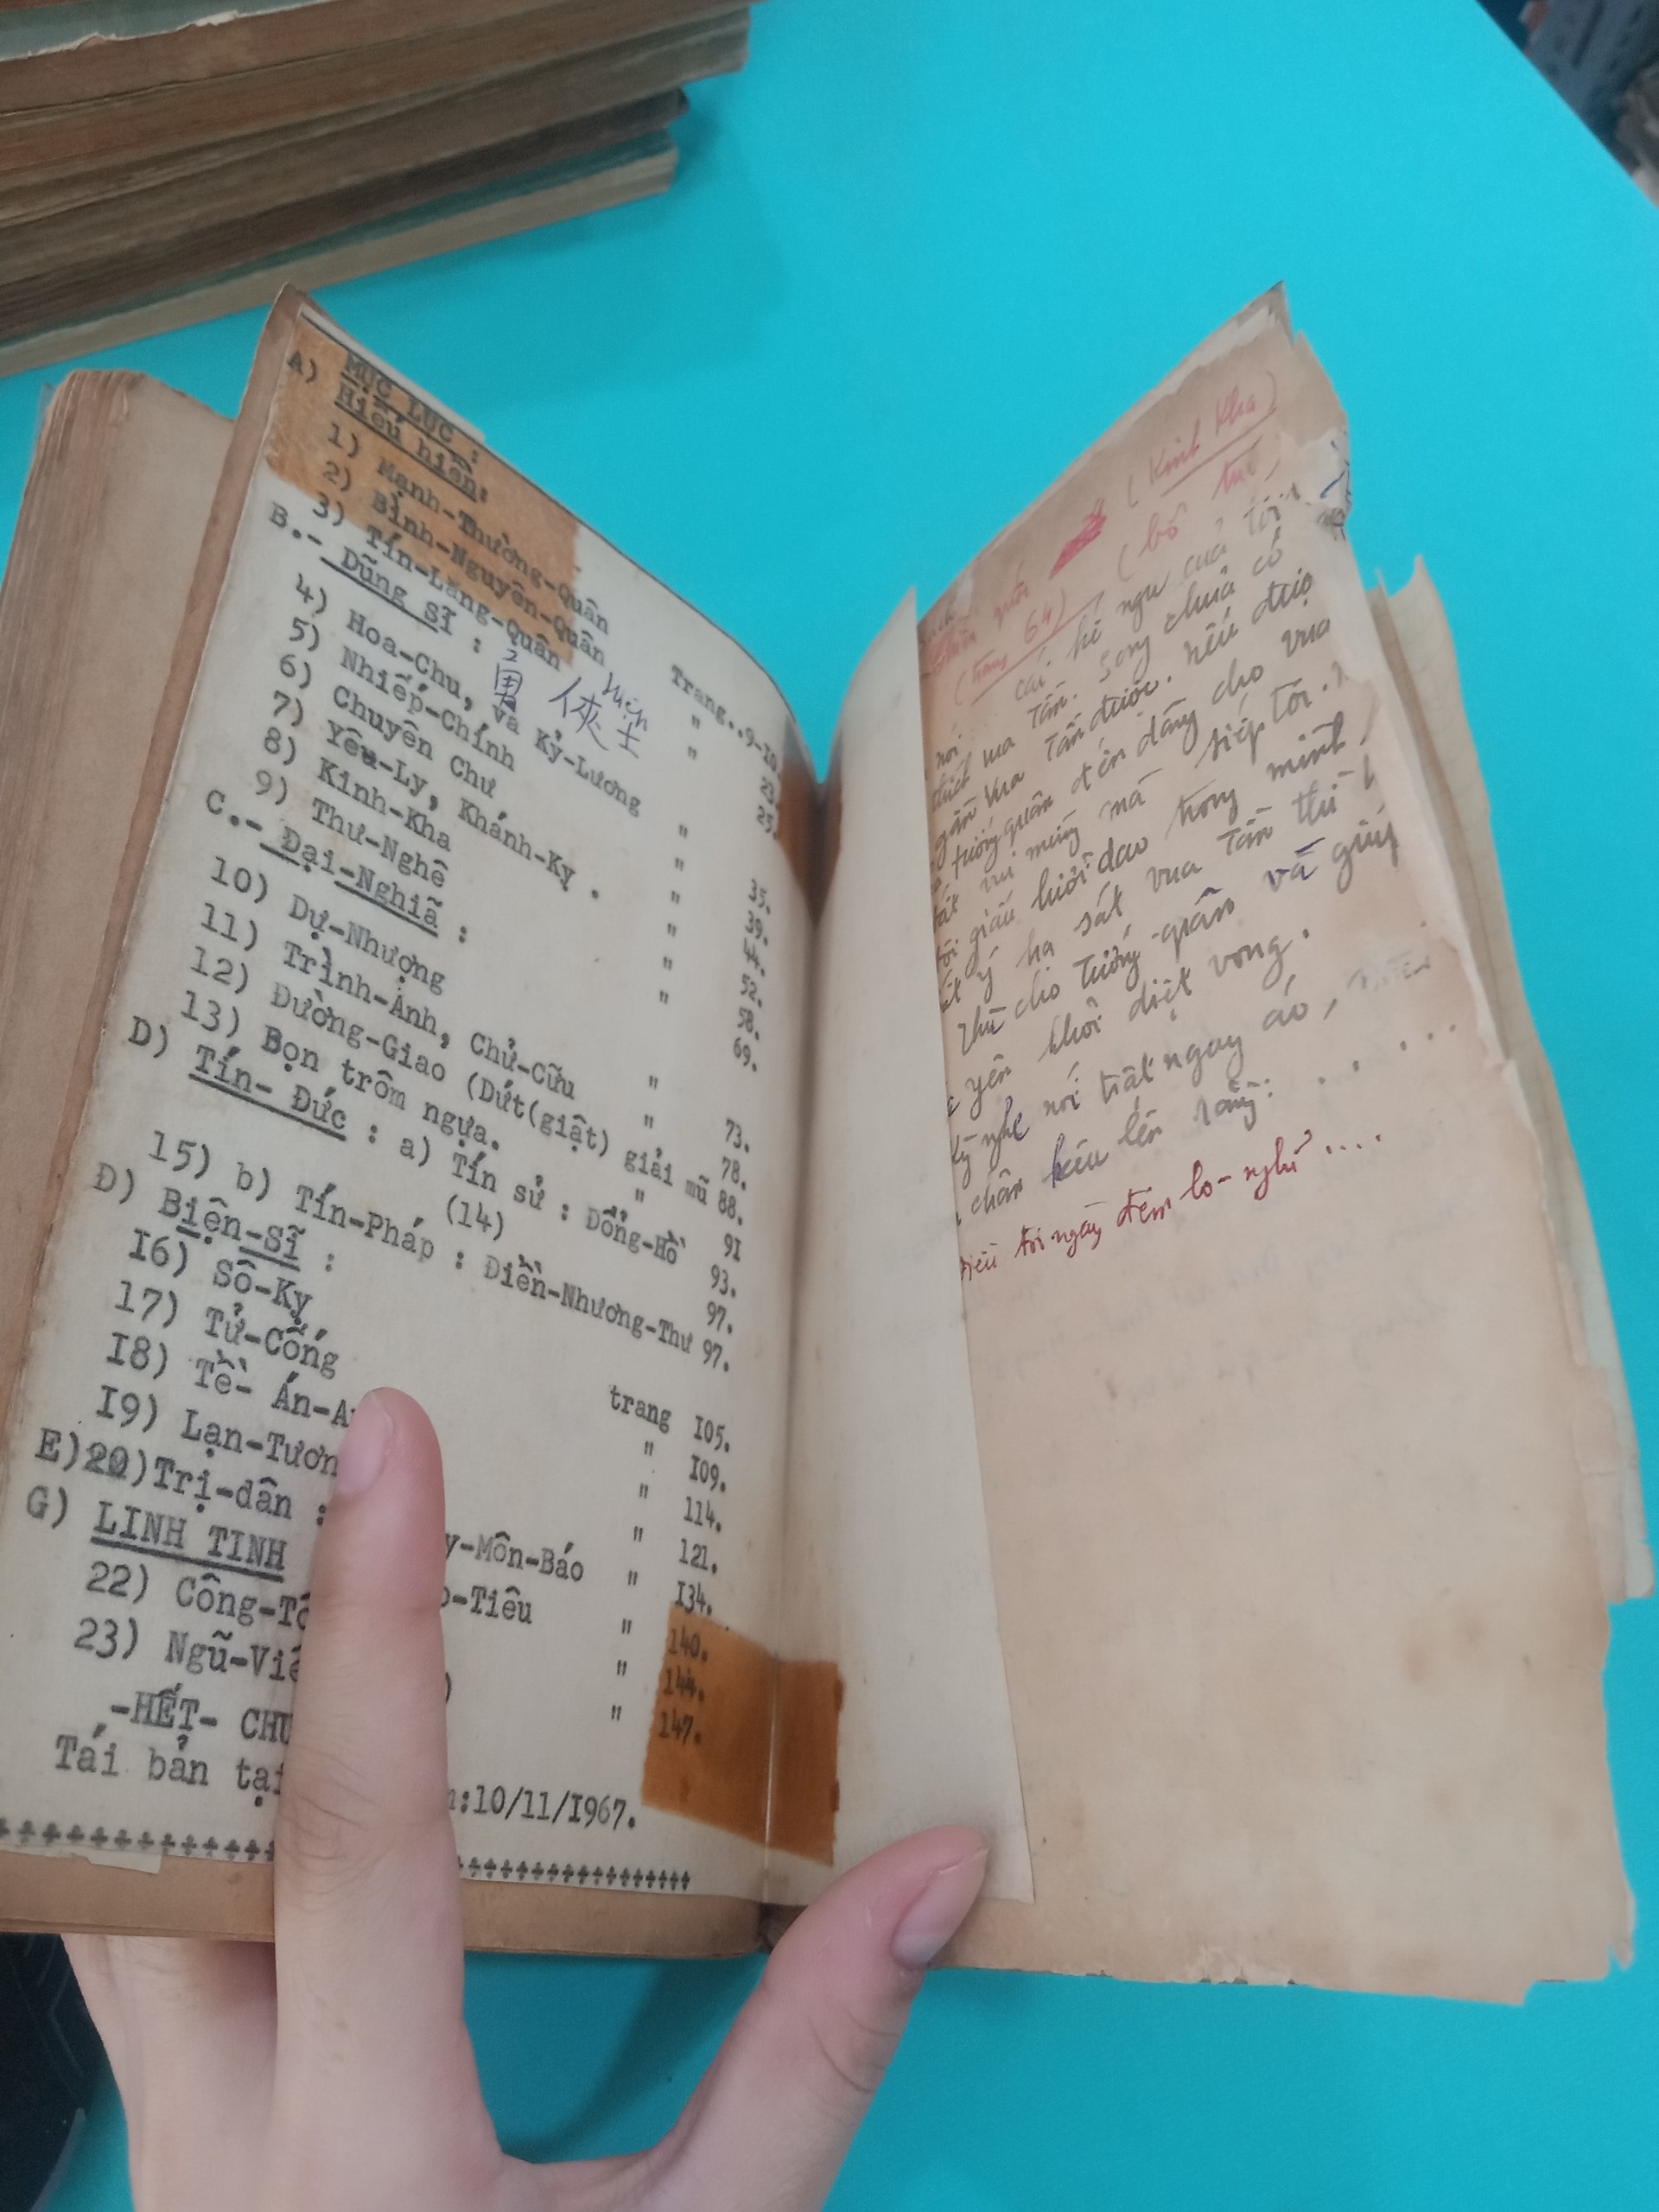 MỤC LỤC :
A) Hiếu hiền:
1) Mạnh-Thường-Quân Trang..9-10.
2) Bình-Nguyên-Quân " 23.
3) Tín-Lăng-Quân " 25.
B.- Dũng sĩ : 勇 俠 士
4) Hoa-Chu, và Kỷ-Lương " 35.
5) Nhiếp-Chính " 39.
6) Chuyên Chư " 44.
7) Yêu-Ly, Khánh-Kỵ . " 52.
8) Kinh-Kha " 58.
9) Thư-Nghê " 69.
C.- Đại-Nghiã :
10) Dự-Nhượng " 73.
11) Trình-Anh, Chử-Cữu " 78.
12) Đường-Giao (Dứt(giật) giải mũ 88.
13) Bọn trôm ngựa. " 91
D) Tín- Đức : a) Tín sử : Đổng-Hồ 93.
(14) 97.
15) b) Tín-Pháp : Điền-Nhương-Thư 97.
Đ) Biện-Sĩ :
I6) Sô-Kỵ trang I05.
17) Tử-Cống " I09.
I8) Tề- Án-A " 114.
I9) Lạn-Tươn " 121.
E)20)Trị-dân : y-Môn-Báo " I34.
G) LINH TINH -Tiêu " 140.
22) Công-Tô " 144.
23) Ngũ-Viê ) " 147.
-HẾT- CHU
Tái bản tại :10/11/I967.
(Kinh Kha)
(bổ túc)
(trang 64)
cái kế ngu của tôi
vua Tần. Song chưa có
gần vua Tần được. nếu được
tướng quân đến dâng cho vua
mừng mà tiếp tôi.
tôi giấu lưỡi dao trong mình
ý hạ sát vua Tần thì
thù cho tướng-quân và giúp
yên khỏi diệt vong.
Kỳ nghe nói trật ngay áo,
chân kêu lên rằng: . . . . .
tôi ngày đêm lo-nghĩ ....